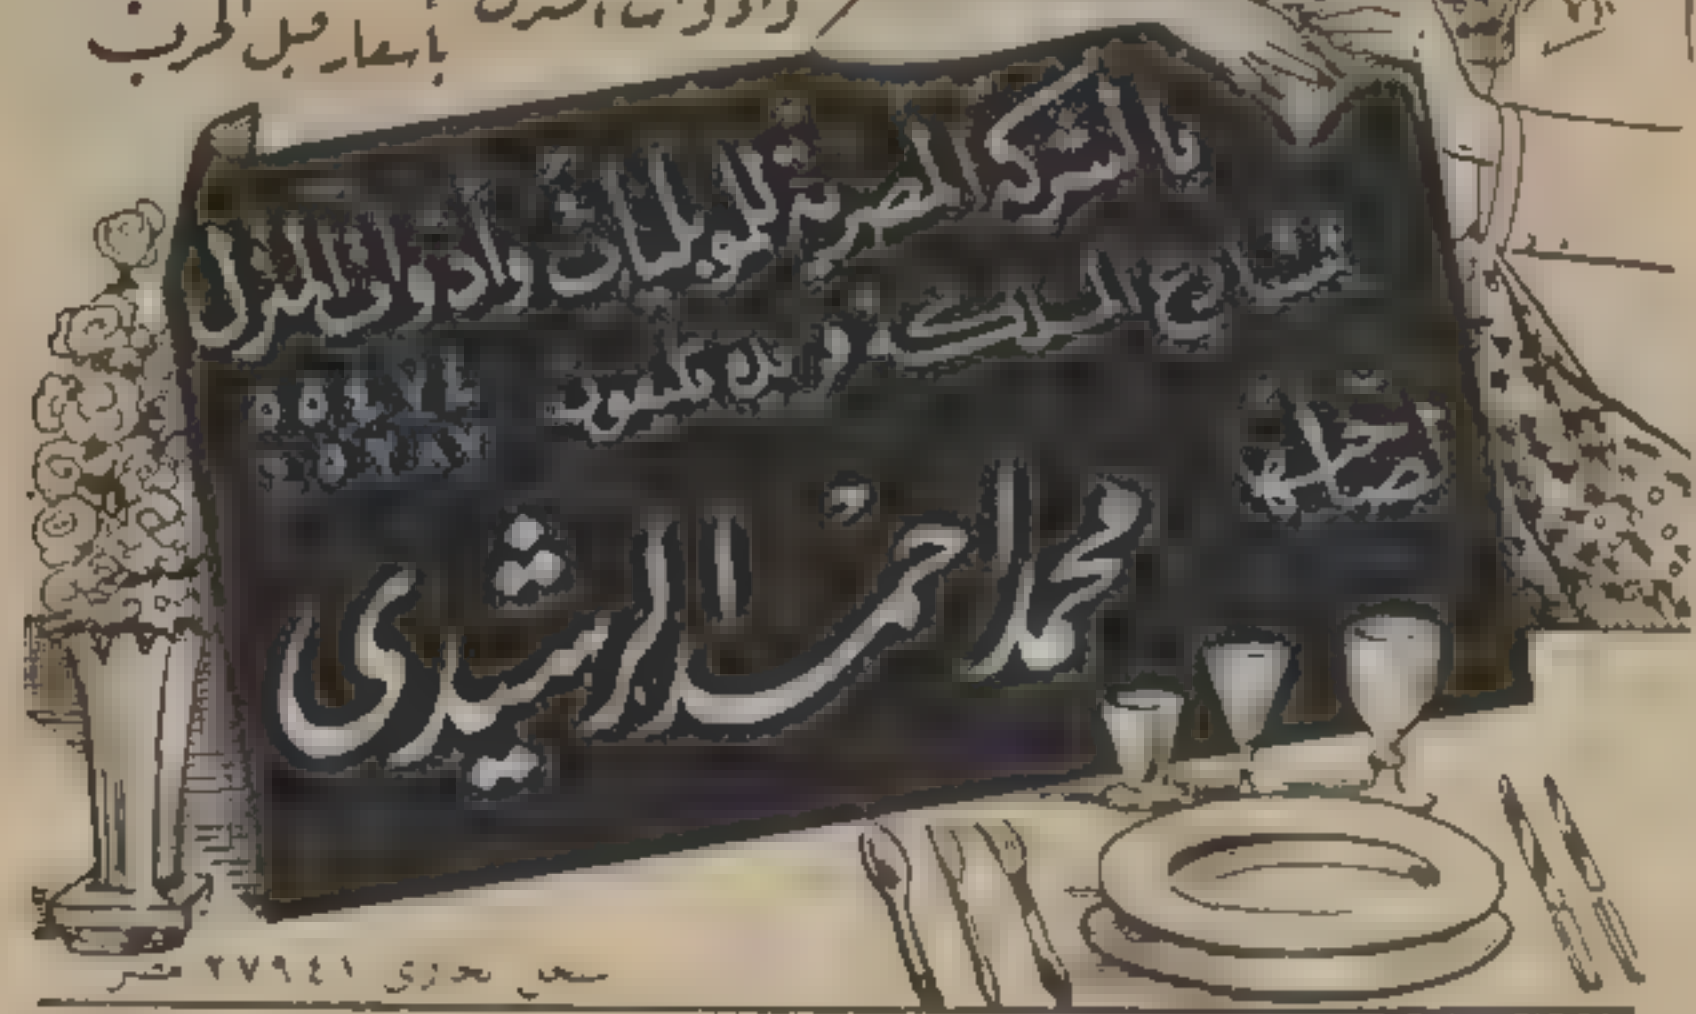 وأدوات المنزل
بأسعار قبل الحرب
بالشركة المصرية للموبليات وأدوات المنزل
شارع الملك فريد تليفون
صاحبها
محمد احمد الرشيدى
سجل تجارى ٢٧٩٤١ مصر